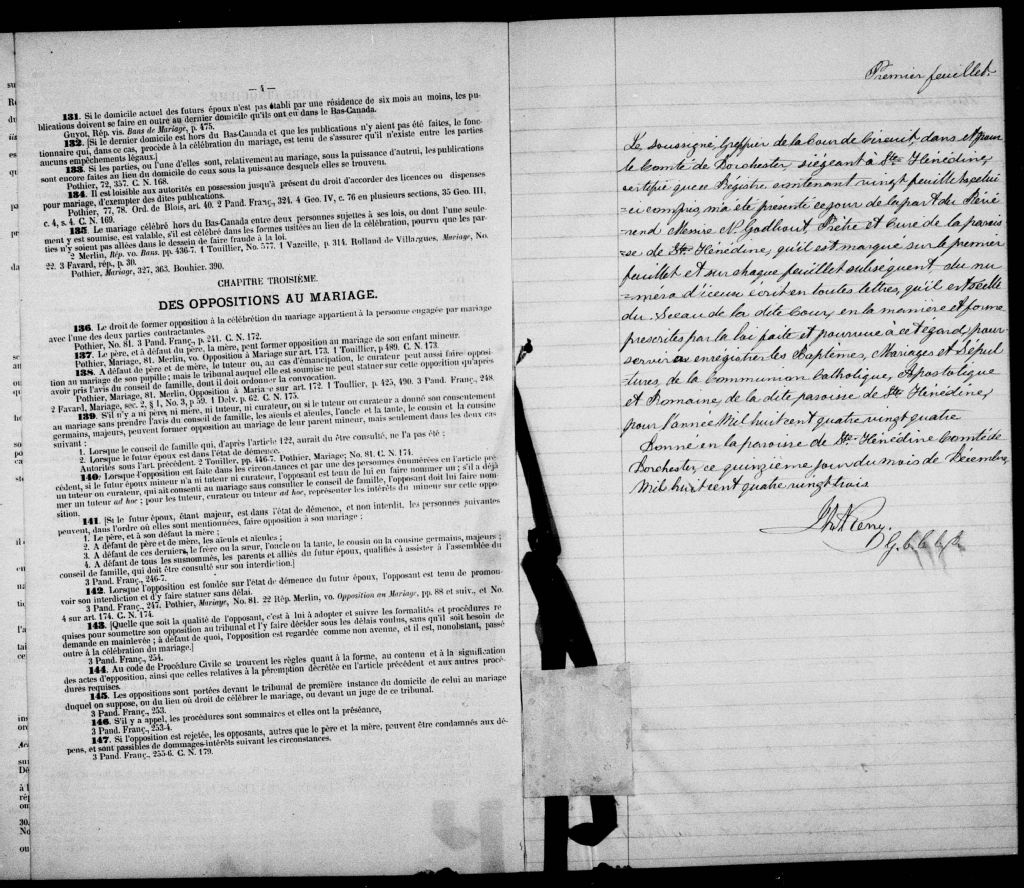 — 4 —
131. Si le domicile actuel des futurs époux n'est pas établi par une résidence de six mois au moins, les pu-
blications doivent se faire en outre au dernier domicile qu'ils ont eu dans le Bas-Canada.
Guyot, Rép. vis. Bans de Mariage, p. 475.
132. [Si le dernier domicile est hors du Bas-Canada et que les publications n'y aient pas été faites, le fonc-
tionnaire qui, dans ce cas, procède à la célébration du mariage, est tenu de s'assurer qu'il n'existe entre les parties
aucuns empêchements légaux.]
133. Si les parties, ou l'une d'elles sont, relativement au mariage, sous la puissance d'autrui, les publications
sont encore faites au lieu du domicile de ceux sous la puissance desquels elles se trouvent.
Pothier, 72, 357. C. N. 168.
134. Il est loisible aux autorités en possession jusqu'à présent du droit d'accorder des licences ou dispenses
pour mariage, d'exempter des dites publications.
Pothier, 77, 78. Ord. de Blois, art. 40. 2 Pand. Franç., 324. 4 Geo. IV, c. 76 en plusieurs sections, 35 Geo. III,
c. 4, s. 4. C. N. 169.
135. Le mariage célébré hors du Bas-Canada entre deux personnes sujettes à ses lois, ou dont l'une seule-
ment y est soumise, est valable, s'il est célébré dans les formes usitées au lieu de la célébration, pourvu que les par-
ties n'y soient pas allées dans le dessein de faire fraude à la loi.
2 Merlin, Rép. vo. Bans. pp. 436-7. 1 Touillier, No. 577. 1 Vazeille, p. 314. Rolland de Villargues, Mariage, No.
22. 3 Favard, rép., p. 30.
Pothier, Mariage, 327, 363. Bouhier. 390.
CHAPITRE TROISIÈME.
DES OPPOSITIONS AU MARIAGE.
136. Le droit de former opposition à la célébrétion du mariage appartient à la personne engagée par mariage
avec l'une des deux parties contractantes.
Pothier, No. 81. 3 Pand. Franç., p. 241. C. N. 172.
137. Le père, et à défaut du père, la mère, peut former opposition au mariage de son enfant mineur.
Pothier, Mariage, 81. Merlin, vo. Opposition à Mariage sur art. 173. 1 Touillier, p 489. C. N. 173.
138. A défaut de père et de mère, le tuteur ou, au cas d'émancipation, le curateur peut aussi faire opposi-
tion au mariage de son pupille; mais le tribunal auquel elle est soumise ne peut statuer sur cette opposition qu'après
avoir pris l'avis du conseil de famille, dont il doit ordonner la convocation.
Pothier, Mariage, 81. Merlin, Opposition à Maria e sur art. 172. 1 Toullier, p 425, 490. 3 Pand. Franç., 248.
2 Favard, Mariage, sec. 2, § 1, No. 3, p 59. 1 Delv. p. 62. C. N. 175.
139. S'il n'y a ni père, ni mère, ni tuteur, ni curateur, ou si le tuteur ou curateur a donné son consentement
au mariage sans prendre l'avis du conseil de famille, les aïeuls et aïeules, l'oncle et la tante, le cousin et la cousine
germains, majeurs, peuvent former opposition au mariage de leur parent mineur, mais seulement dans les deux cas
suivant :
1. Lorsque le conseil de famille qui, d'après l'article 122, aurait du être consulté, ne l'a pas été ;
2. Lorsque le futur époux est dans l'état de démence.
Autorités sous l'art. précédent. 2 Touiller. pp. 446-7. Pothier, Mariage; No. 81. C. N. 174.
140. Lorsque l'opposition est faite dans les circonstances et par une des personnes énumérées en l'article pré-
cédent, si le futur époux mineur n'a ni tuteur ni curateur, l'opposant est tenu de lui en faire nommer un ; s'il a déjà
un tuteur ou curateur, qui ait consenti au mariage sans consulter le conseil de famille, l'opposant doit lui faire nom-
mer un tuteur ad hoc ; pour les tuteur, curateur ou tuteur ad hoc, représenter les intérêts du mineur sur cette oppo-
sition.
141. [Si le futur époux, étant majeur, est dans l'état de démence, et non interdit, les personnes suivantes
peuvent, dans l'ordre où elles sont mentionnées, faire opposition à son mariage ;
1. Le père, et à son défaut la mère ;
2. A défaut de père et de mère, les aïeuls et aïeules ;
3. A défaut de ces derniers, le frère ou la sœur, l'oncle ou la tante, le cousin ou la cousine germains, majeurs ;
4. A défaut de tous les susnommés, les parents et alliés du futur époux, qualifiés à assister à l'assemblée du
conseil de famille, qui doit être consulté sur son interdiction.]
3 Pand. Franç., 246-7.
142. Lorsque l'opposition est fondée sur l'état de démence du futur époux, l'opposant est tenu de promou-
voir son interdiction et d'y faire statuer sans délai.
3 Pand. Franç., 247. Pothier, Mariage, No. 81. 22 Rép. Merlin, vo. Opposition au Mariage, pp. 88 et suiv., et No.
4 sur art. 174. C. N. 174.
143. [Quelle que soit la qualité de l'opposant, c'est à lui à adopter et suivre les formalités et procédures re-
quises pour soumettre son opposition au tribunal et l'y faire décider sous les délais voulus, sans qu'il soit besoin de
demande en mainlevée ; à défaut de quoi, l'opposition est regardée comme non avenue, et il est, nonobstant, passé
outre à la célébration du mariage.]
3 Pand. Franç., 254.
144. Au code de Procédure Civile se trouvent les règles quant à la forme, au contenu et à la signification
des actes d'opposition, ainsi que celles relatives à la péremption décrétée en l'article précédent et aux autres procé-
dures requises.
145. Les oppositions sont portées devant le tribunal de première instance du domicile de celui au mariage
duquel on suppose, ou du lieu où droit de célébrer le mariage, ou devant un juge de ce tribunal.
3 Pand. Franç., 253.
146. S'il y a appel, les procédures sont sommaires et elles ont la préséance,
3 Pand. Franç., 253-4.
147. Si l'opposition est rejetée, les opposants, autres que le père et la mère, peuvent être condamnés aux dé-
pens, et sont passibles de dommages-intérêts suivant les circonstances.
3 Pand. Franç., 255-6. C. N. 179.
Premier feuillet.
Le soussigné, Greffier de la Cour de Circuit, dans et pour
le Comté de Dorchester siégeant à Ste Hénédine,
certifie que ce Régistre contenant vingt feuillets celui
=ci compris, m'a été presenté ce jour de la part du Révé
=rend Messire N. Godbout, Prêtre et Curé de la parois
=se de Ste. Hénédine, qu'il est marqué sur le premier
feuillet et sur chaque feuillet subséquent, du nu
=méro d'iceux écrit en toutes lettres, qu'il est scellé
du Sceau de la dite Cour, en la manière et forme
prescrites par la loi faite et pourvue à cet égard, pour
servir à enregistrer les Baptêmes, Mariages et Sépul
tures, de la Communion Catholique, Apostolique
et Romaine, de la dite paroisse de Ste Hénédine,
pour l'année Mil huit cent quatre vingt quatre
Donné en la paroisse de Ste. Hénédine Comté de
Dorchester, ce quinzième jour du mois de Décembre
Mil huit cent quatre vingt trois